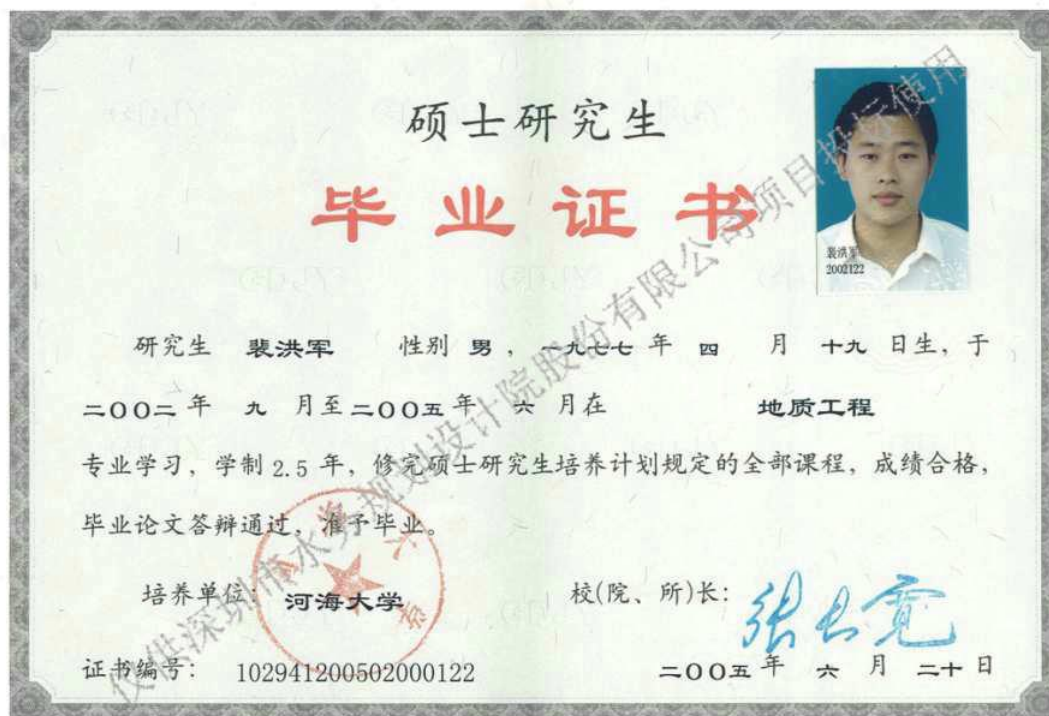 硕士研究生
毕业证书
裴洪军
2002122
研究生 裴洪军 性别 男，一九七七 年 四 月 十九 日生，于
二〇〇二 年 九 月至 二〇〇五 年 六 月在 地质工程
专业学习，学制 2.5 年，修完硕士研究生培养计划规定的全部课程，成绩合格，
毕业论文答辩通过，准予毕业。
培养单位：河海大学 校(院、所)长：张长宽
证书编号：102941200502000122 二〇〇五 年 六 月 二十 日
仅供深圳市水务规划设计院股份有限公司项目投标使用